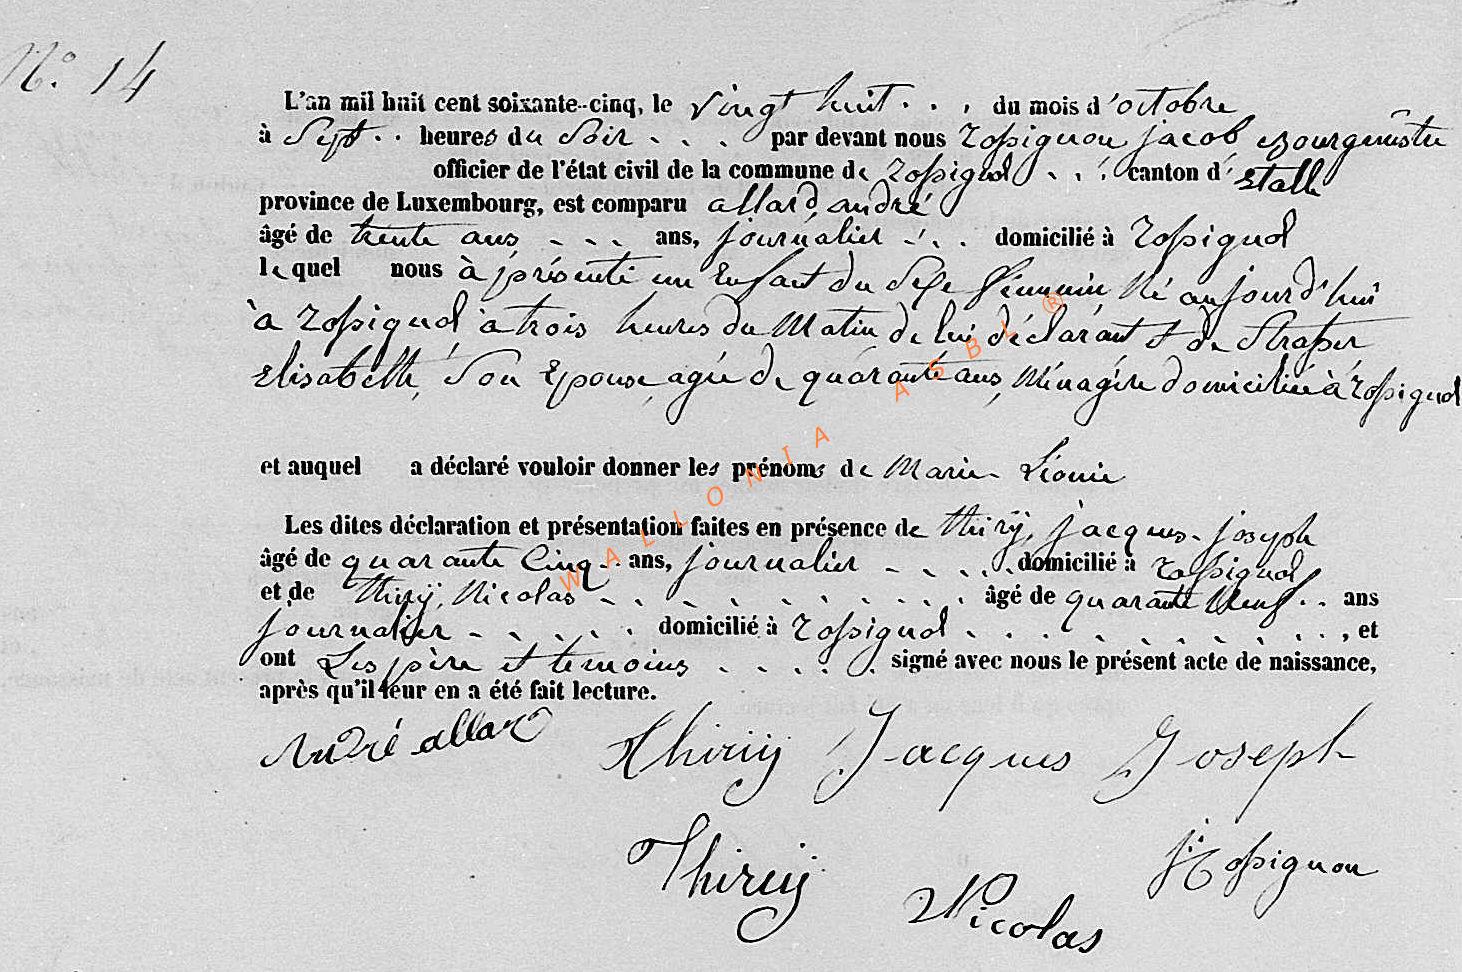 N.o 14
L'an mil huit cent soixante-cinq, le vingt huit . . . du mois d'octobre
à Sept . . heures du Soir . . . par devant nous Rossignon jacob Bourgmestre
officier de l'état civil de la commune de Rossignol . . . canton d'Etalle
province de Luxembourg, est comparu allard, andré
âgé de trente ans . . . ans, journalier . . . domicilié à Rossignol
lequel nous à présenté un Enfant du Sexe féminin, Né aujourd'hui
à Rossignol à trois heures du Matin de lui déclarant & de Strasser
Elisabeth, Son Epouse, agée de quarante ans, Ménagère domiciliée à Rossignol
et auquel a déclaré vouloir donner les prénoms de Marie - Léonie
Les dites déclaration et présentation faites en présence de thiry, jacques - joseph
âgé de quarante Cinq . . ans, journalier - - - - - domicilié à Rossignol
et de thirÿ, Nicolas . . . . . . . . . . . âgé de quarante Neuf . . ans
journalier - - - - - . domicilié à Rossignol . . . . . . . . . . . , et
ont Les père et temoins . . . . . . signé avec nous le présent acte de naissance,
après qu'il leur en a été fait lecture.
WALLONIA ASBL ®
André allard
Thiriÿ Jacques Joseph
Thiriÿ Nicolas
J. Rossignon